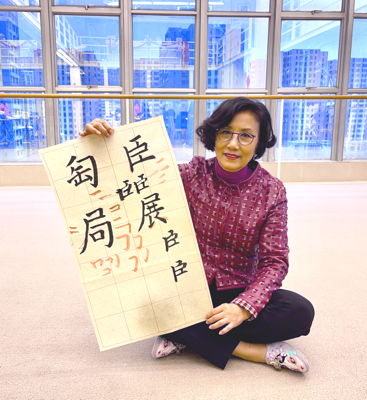 臣
臣臣
展
臣
臣
匋
局